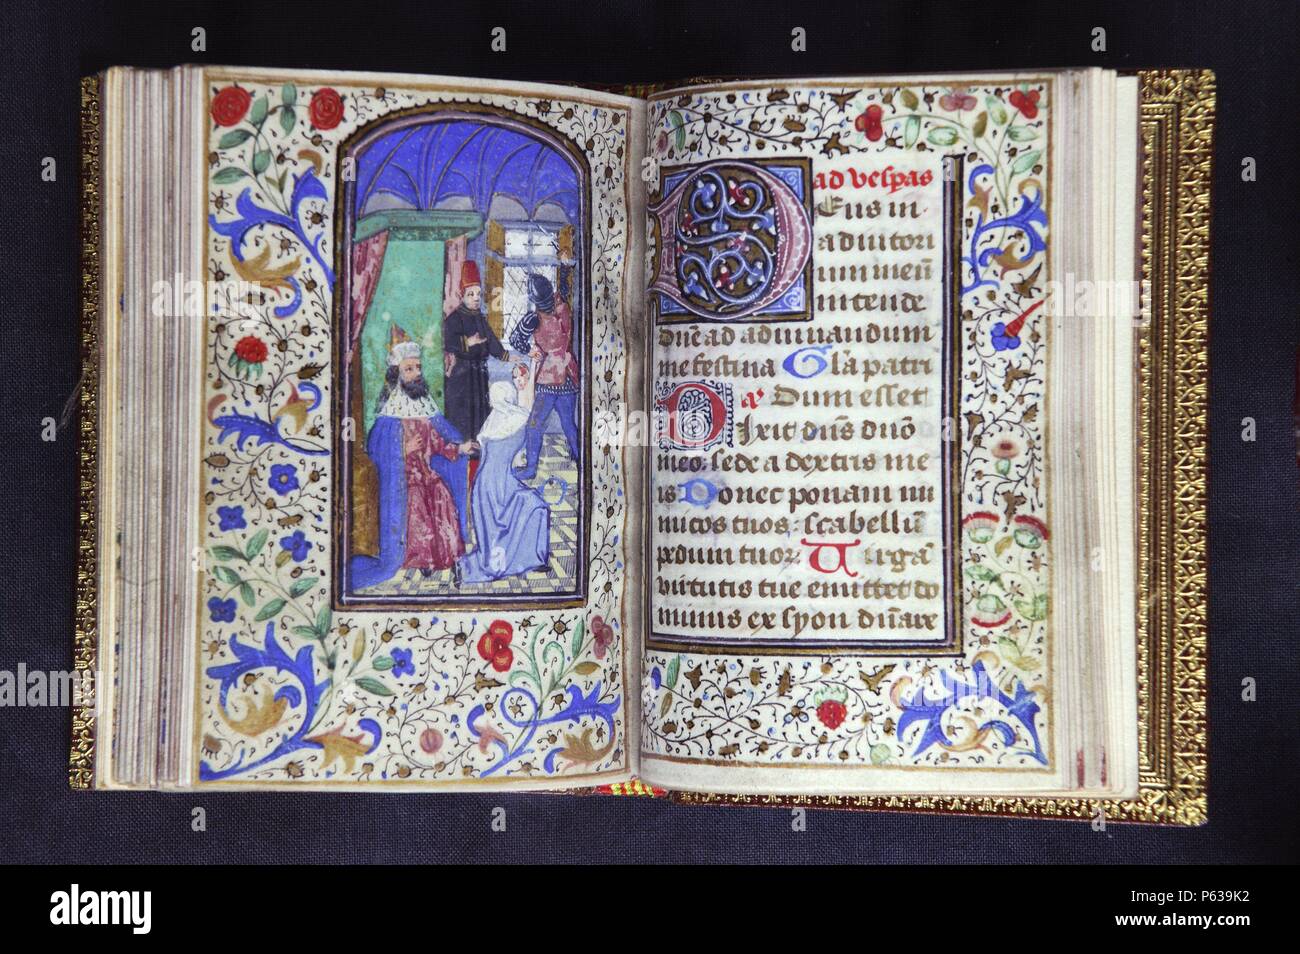 ad vespas
Eus in
adiutori
um meū
intende
Dn̄e ad adiuuandum
me festina Gl̄a patri
Dum esset
Dixit dn̄s dn̄o
meo: sede a dextris me
is Donec ponam ini
micos tuos: scabellū
pedum tuor̄ Uirgā
uirtutis tue emittet do
minus ex syon dn̄are
a alamy stock photo
alamy
Image ID: P639K2
www.alamy.com